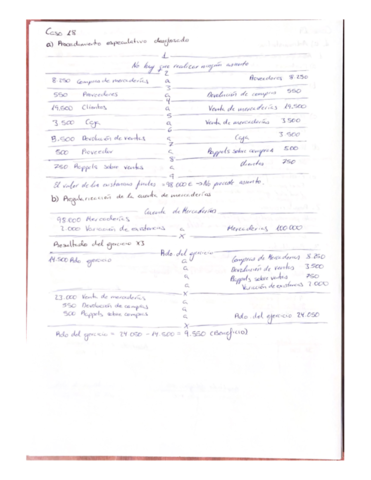 Caso 28
a) Procedimiento especulativo desglosado
1
No hay que realizar ningún asiento
2
8.250 Compras de mercaderías a Proveedores 8.250
3
550 Proveedores a Devolución de compras 550
4
19.500 Clientes a Venta de mercaderías 19.500
5
3.500 Caja a Venta de mercaderías 3.500
6
3.500 Devolución de ventas a Caja 3.500
7
500 Proveedor a Rappels sobre compras 500
8
250 Rappels sobre ventas a Clientes 250
9
El valor de las existencias finales
b) Regularización de la cuenta de mercaderías
Cuenta de Mercaderías
Mercaderías
3.000 Variación de existencias a Mercaderías 100.000
x
Resultado del ejercicio X3
Rdo del ejercicio
14.500 Rdo ejercicio a Compras de Mercaderías 8.250
a Devolución de ventas 3.500
a Rappels sobre ventas 250
a Variación de existencias 3.000
x
23.000 Venta de mercaderías a
550 Devolución de compras a
500 Rappels de compras a
a Rdo del ejercicio 24.050
x
Rdo del ejercicio = 24.050 - 14.500 = 9.550 (Beneficio)